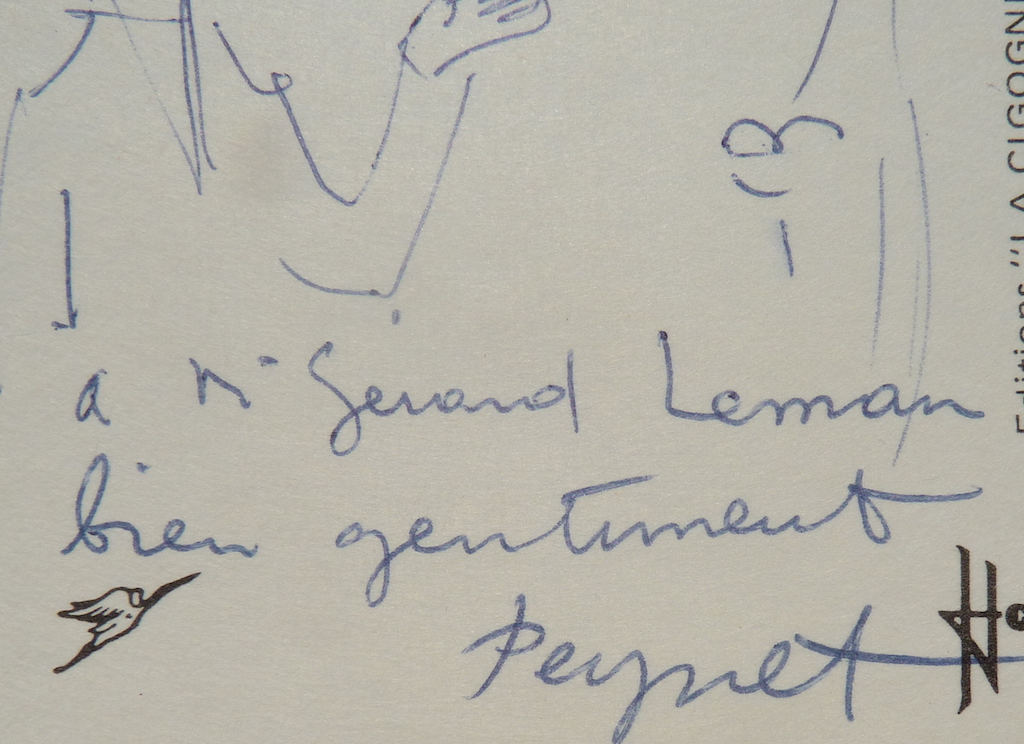 a Mr Gérard Leman
bien gentiment
Peynet
Editions "LA CIGOGN